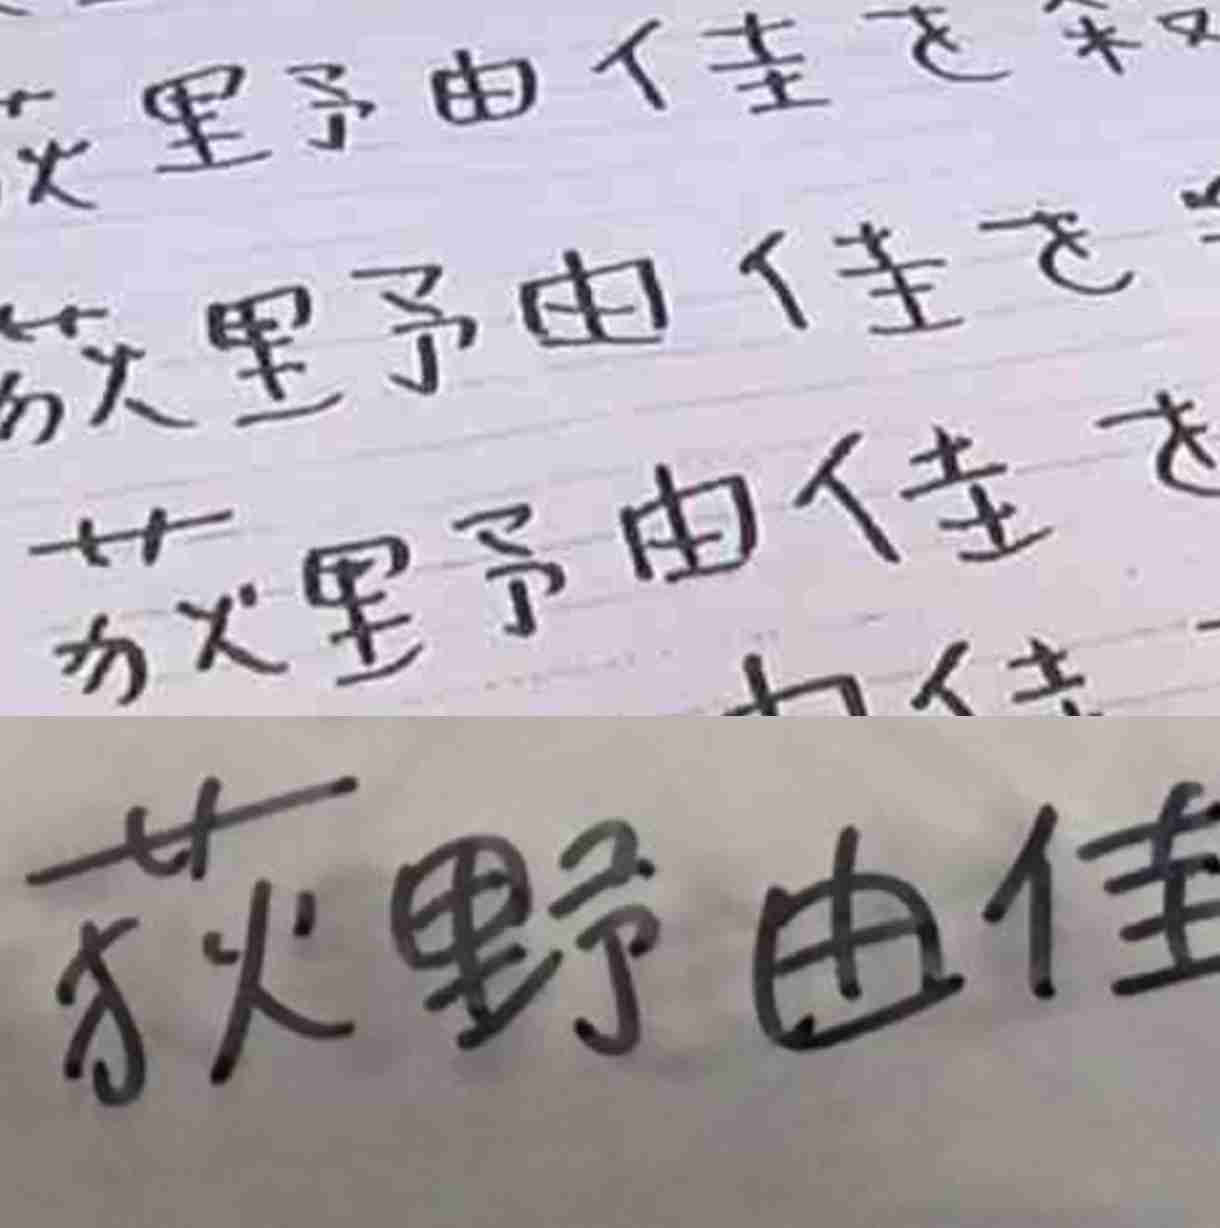 荻野由佳を
荻野由佳を
荻野由佳を
由佳
荻野由佳